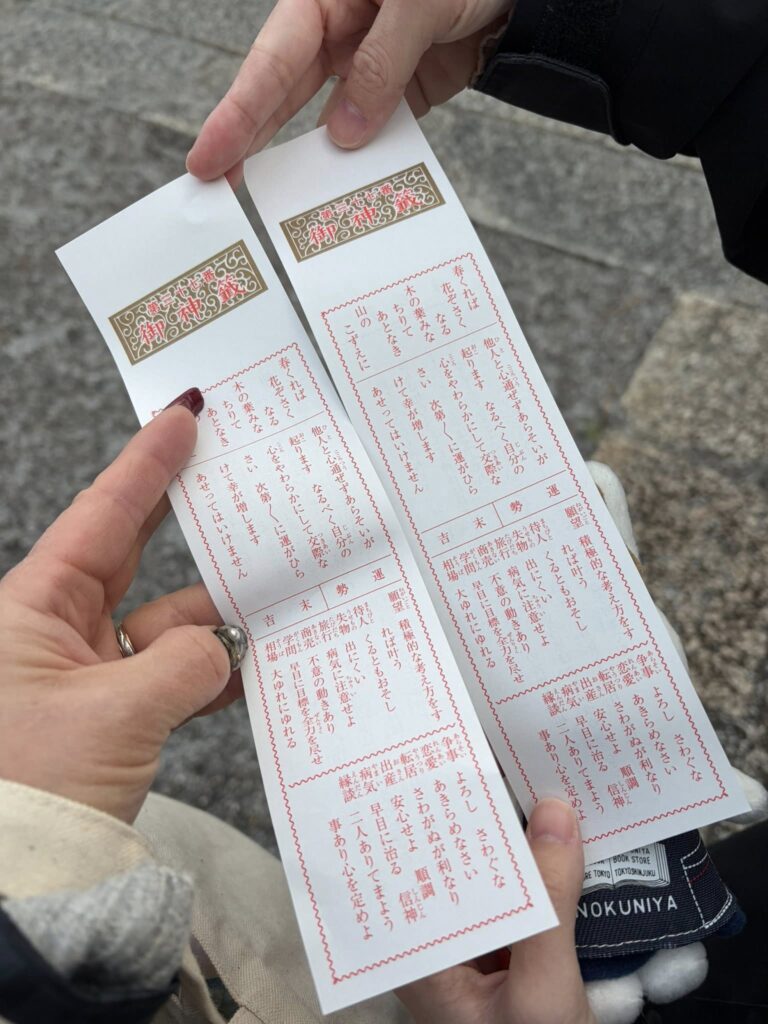 第三十七番
御神籤
春くれば
花ぞさく
なる
木の葉みな
ちりて
あとなき
他人と心通ぜずあらそいが
起ります なるべく自分の
心をやわらかにして交際な
さい 次第〱に運がひら
けて幸が増します
あせってはいけません
運勢
末吉
願望 積極的な考え方をす
れば叶う
待人 くるともおそし
失物 出にくい
旅行 病気に注意せよ
商売 不意の動きあり
学問 早目に目標を全力を尽せ
相場 大ゆれにゆれる
争事 よろし さわぐな
恋愛 あきらめなさい
転居 さわがぬが利なり
出産 安心せよ 順調
病気 早目に治る 信神
縁談 二人ありてまよう
事あり心を定めよ
第三十七番
御神籤
春くれば
花ぞさく
なる
木の葉みな
ちりて
あとなき
山の
こずえに
他人と心通ぜずあらそいが
起ります なるべく自分の
心をやわらかにして交際な
さい 次第〱に運がひら
けて幸が増します
あせってはいけません
運勢
末吉
願望 積極的な考え方をす
れば叶う
待人 くるともおそし
失物 出にくい
旅行 病気に注意せよ
商売 不意の動きあり
学問 早目に目標を全力を尽せ
相場 大ゆれにゆれる
争事 よろし さわぐな
恋愛 あきらめなさい
転居 さわがぬが利なり
出産 安心せよ 順調
病気 早目に治る 信神
縁談 二人ありてまよう
事あり心を定めよ
BOOK STORE
TOKYO SHINJUKU
NOKUNIYA